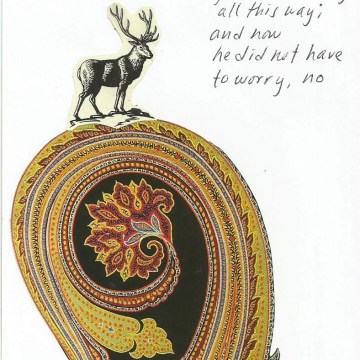 all this way;
and now
he did not have
to worry, no